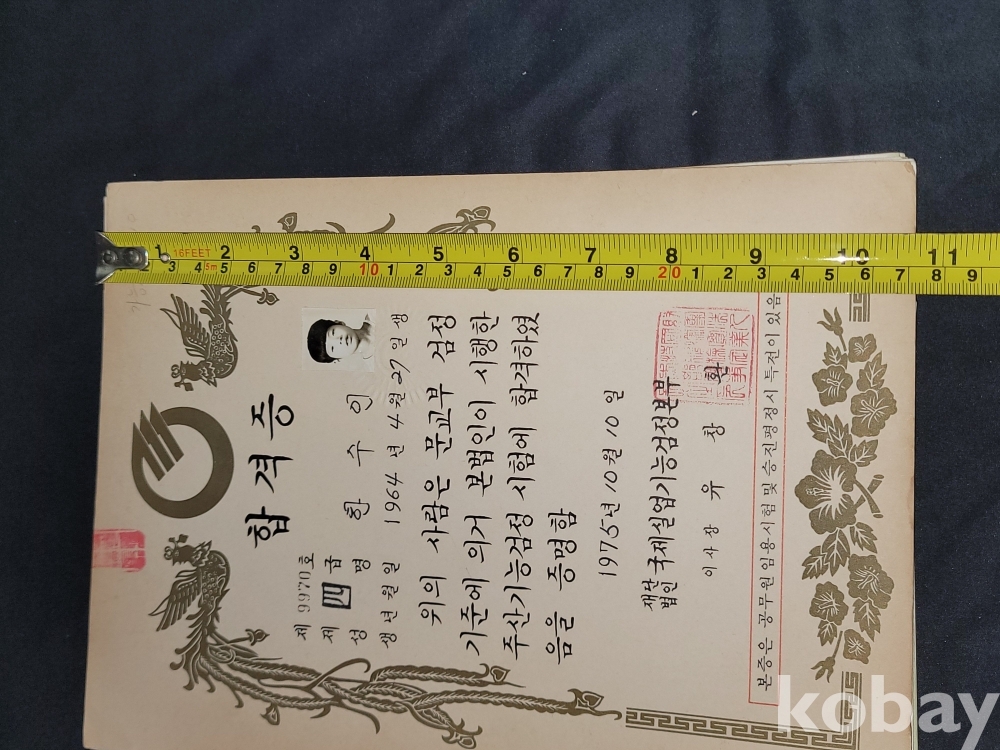 합격증
제 9970 호
제 四 급
성명 한수이
생년월일 1964년 4월 27일생
위의 사람은 문교부 검정
기준에 의거 본법인이 시행한
주산기능검정 시험에 합격하였
음을 증명함
1975년 10월 10일
재단법인 국제실업기능검정본부
이사장 유창환
본증은 공무원 임용시험 및 승진평정시 특전이 있음
1 2 3 4 5 6 7 8 9 10 11
16FEET
3 4 5m 5 6 7 8 9 10 1 2 3 4 5 6 7 8 9 20 1 2 3 4 5 6 7 8 9
kobay